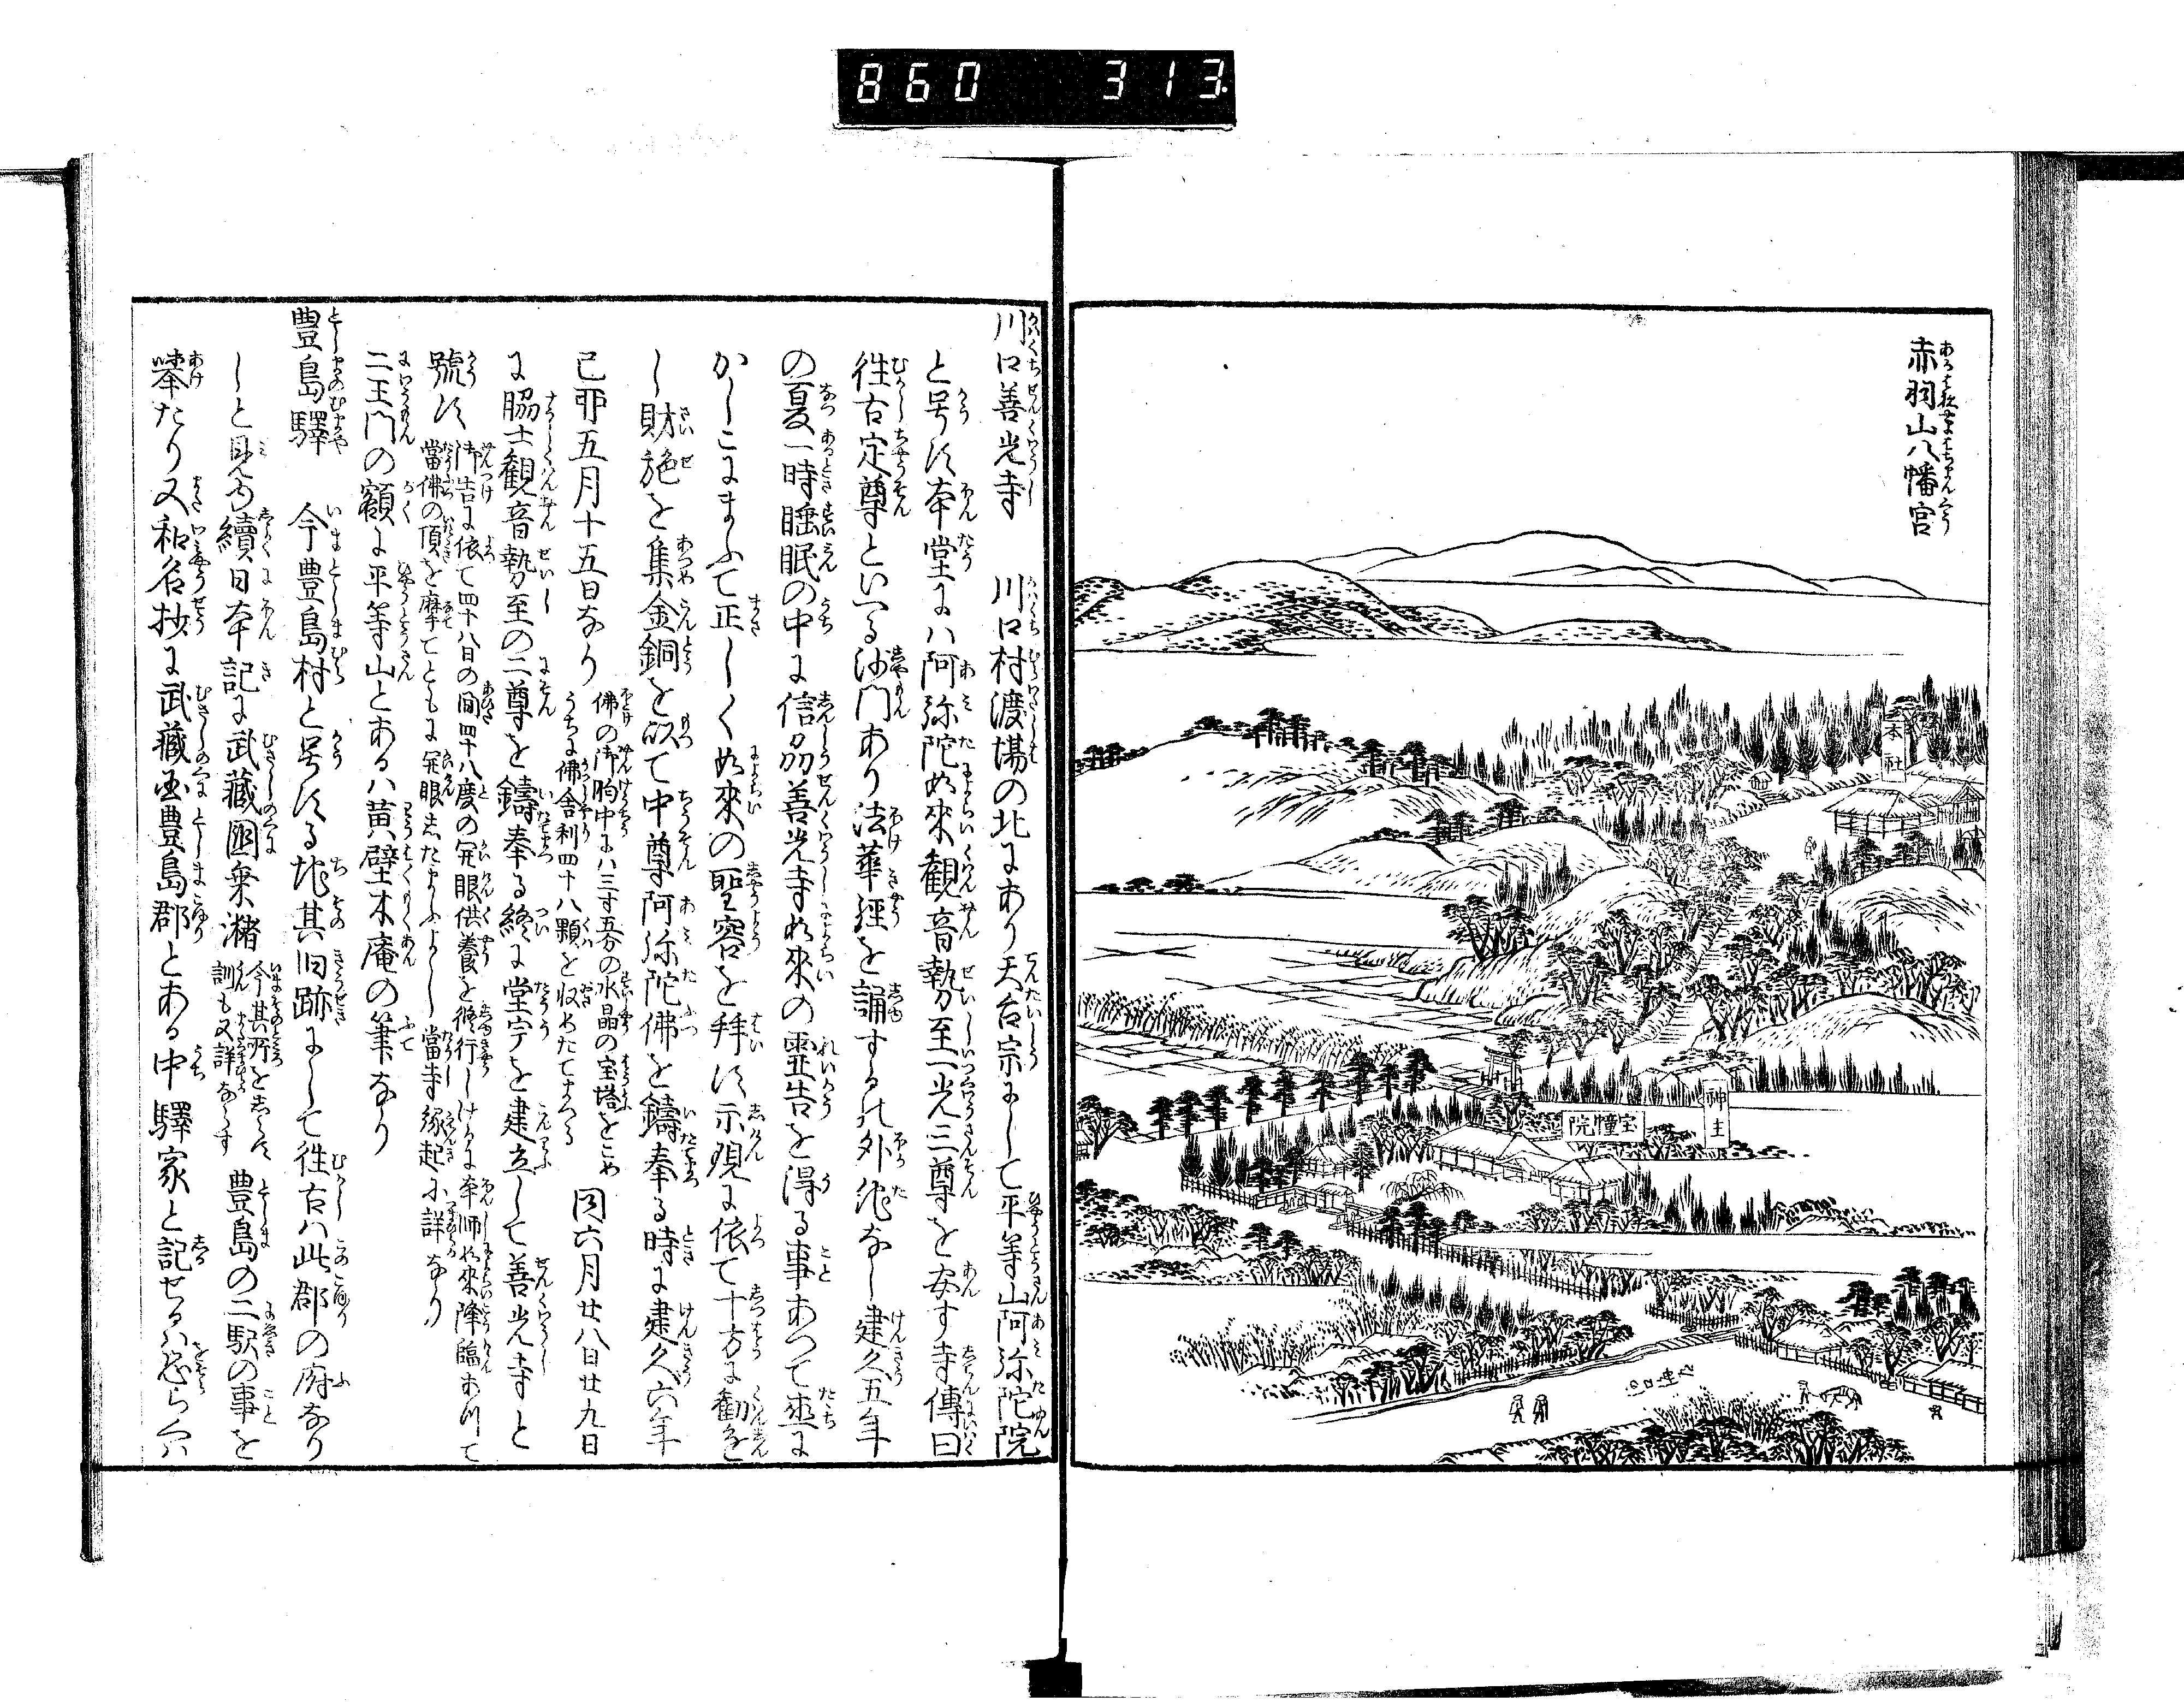 860 313
赤羽山八幡宮
本社
神主
宝幢院
川口善光寺 川口村渡場の北にあり天台宗にして平等山阿弥陀院
と号す本堂には阿弥陀如來観音勢至一光三尊を安す寺傳曰
往古定尊といへる沙門あり法華經を誦するの外他なし建久五年
の夏一時睡眠の中に信州善光寺如來の霊告を得る事あつて直に
かしこにまふて正しく如來の聖容を拝す示現に依て十方に勧進
し財施を集金銅を以て中尊阿弥陀佛を鑄奉る時に建久六年
己卯五月十五日なり
佛の御胸中には三寸五分の水晶の宝塔をこめ
うちに佛舎利四十八顆を収めたてまつる
同六月廿八日廿九日
に脇士観音勢至の二尊を鑄奉る終に堂宇を建立して善光寺と
號す
御告に依て四十八日の間四十八度の開眼供養を修行しけるに本師如來降臨ありて
當佛の頂を摩てともに開眼したまふよし當寺縁起に詳なり
二王門の額に平等山とあるハ黄檗木庵の筆なり
豊島驛 今豊島村と号する地其旧跡にして往古ハ此郡の府なり
しと見ゆ續日本記に武藏國乗潴
今其所をしらす
訓も又詳ならす
豊島の二駅の事を
擧たり又和名抄に武藏国豊島郡とある中驛家と記せるハ恐らくハ